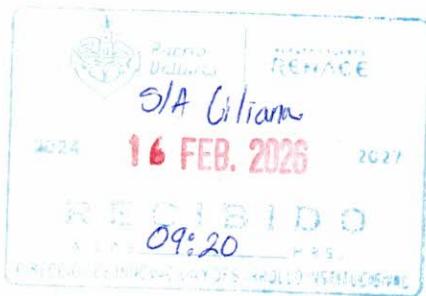 Puerto
Vallarta
RENACE
S/A Liliana
2024
16 FEB. 2026
2027
RECIBIDO
A LAS 09:20 HRS.